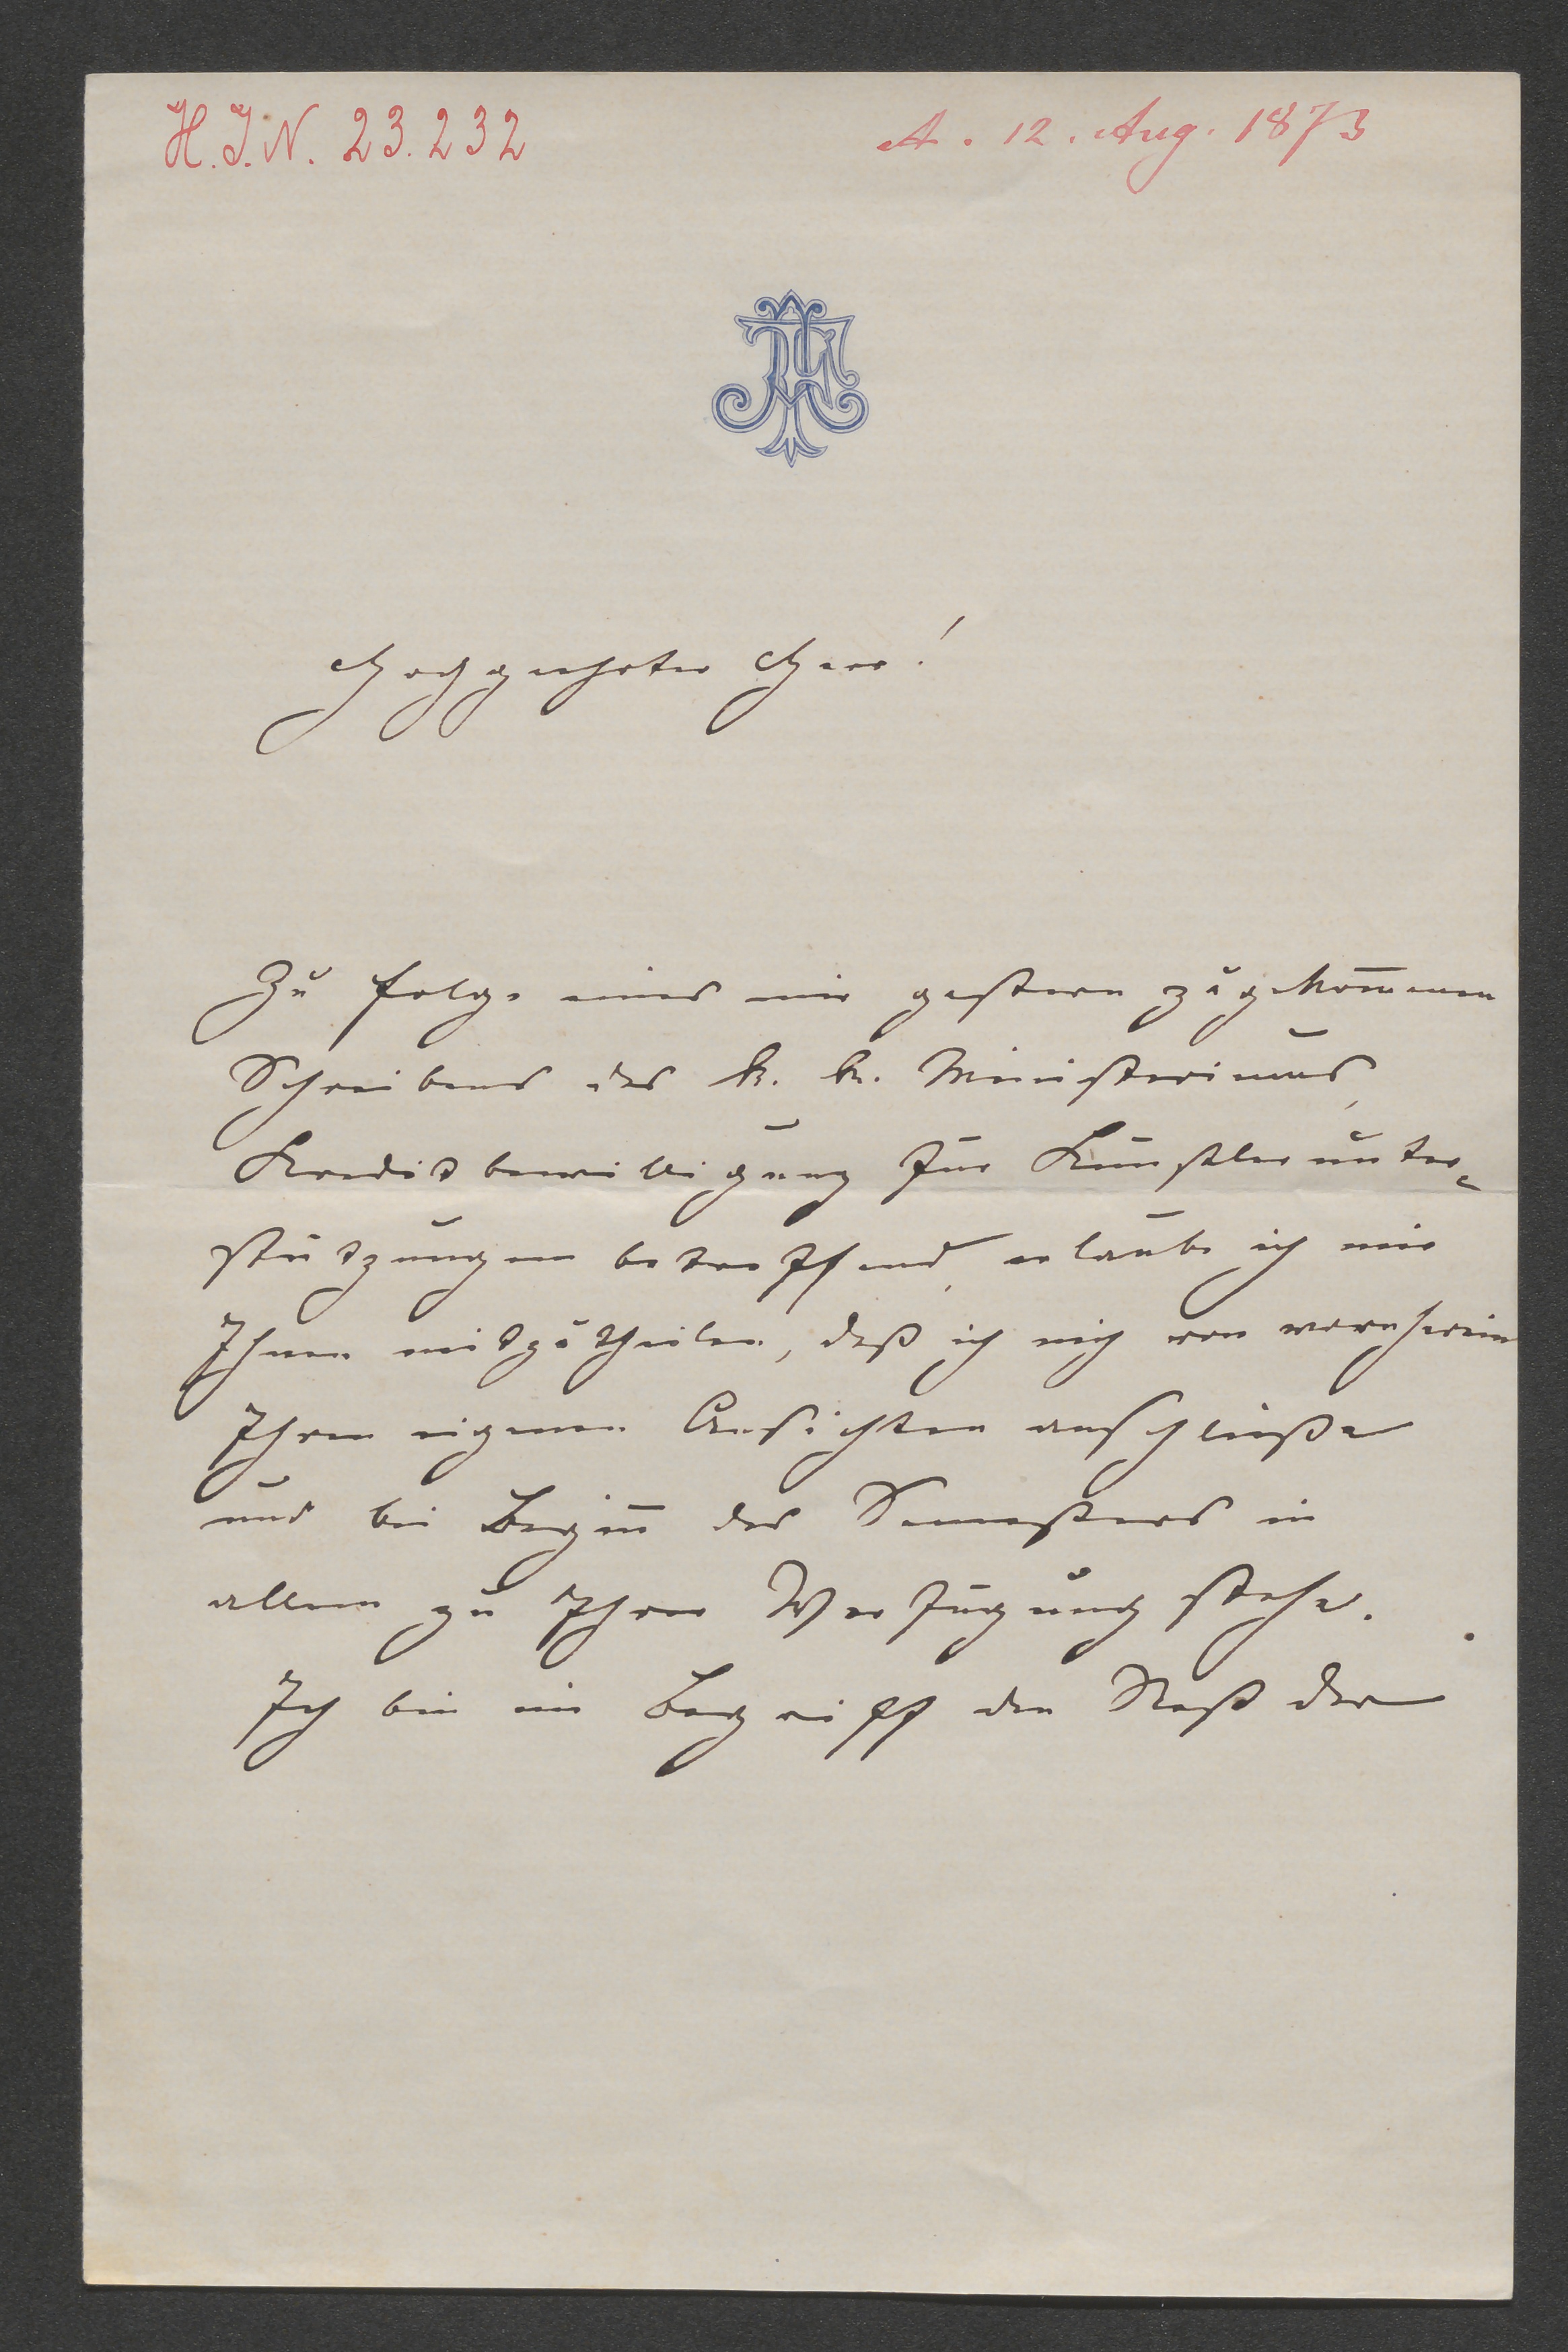 H.I.N. 23.232
A. 12. Aug. 1873
Hochgeehrter Herr!
Zu folge eines mir gestern zugekom̅enen
Schreibens des k. k. Ministeriums,
Kreditbewilligung für Künstlerunter-
stützungen betreffend, erlaube ich mir
Ihnen mitzutheilen, daß ich mich von vornherein
Ihren eigenen Ansichten anschließe
und bei Begin̅ des Semesters in
allem zu Ihrer Verfügung stehe.
Ich bin im Begriff den Rest der